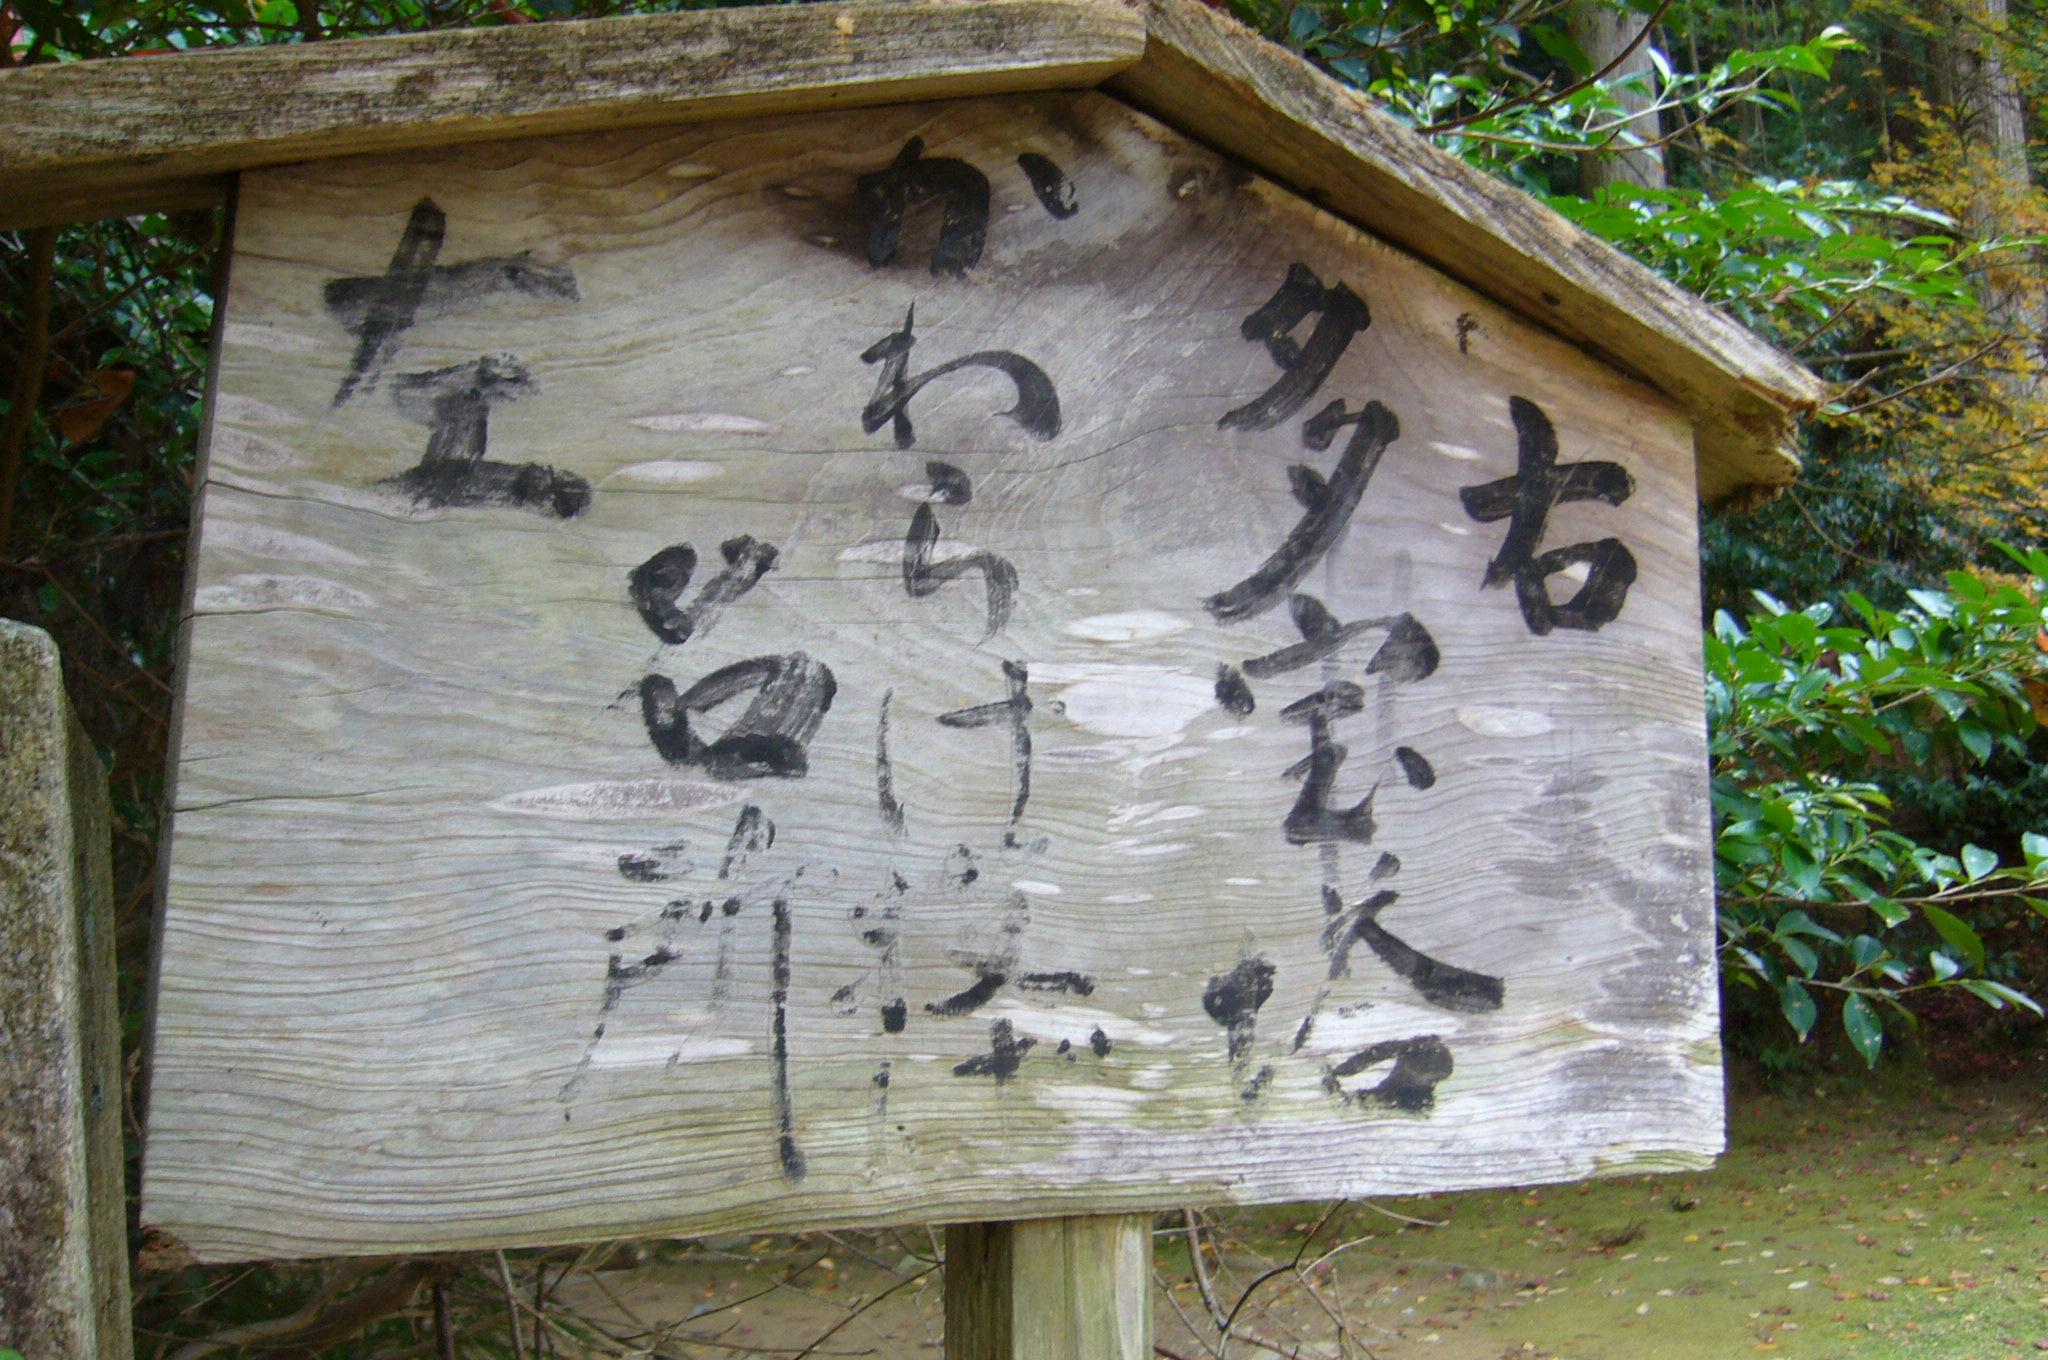 右
多宝大塔
かわらけ投げ
呂所
左